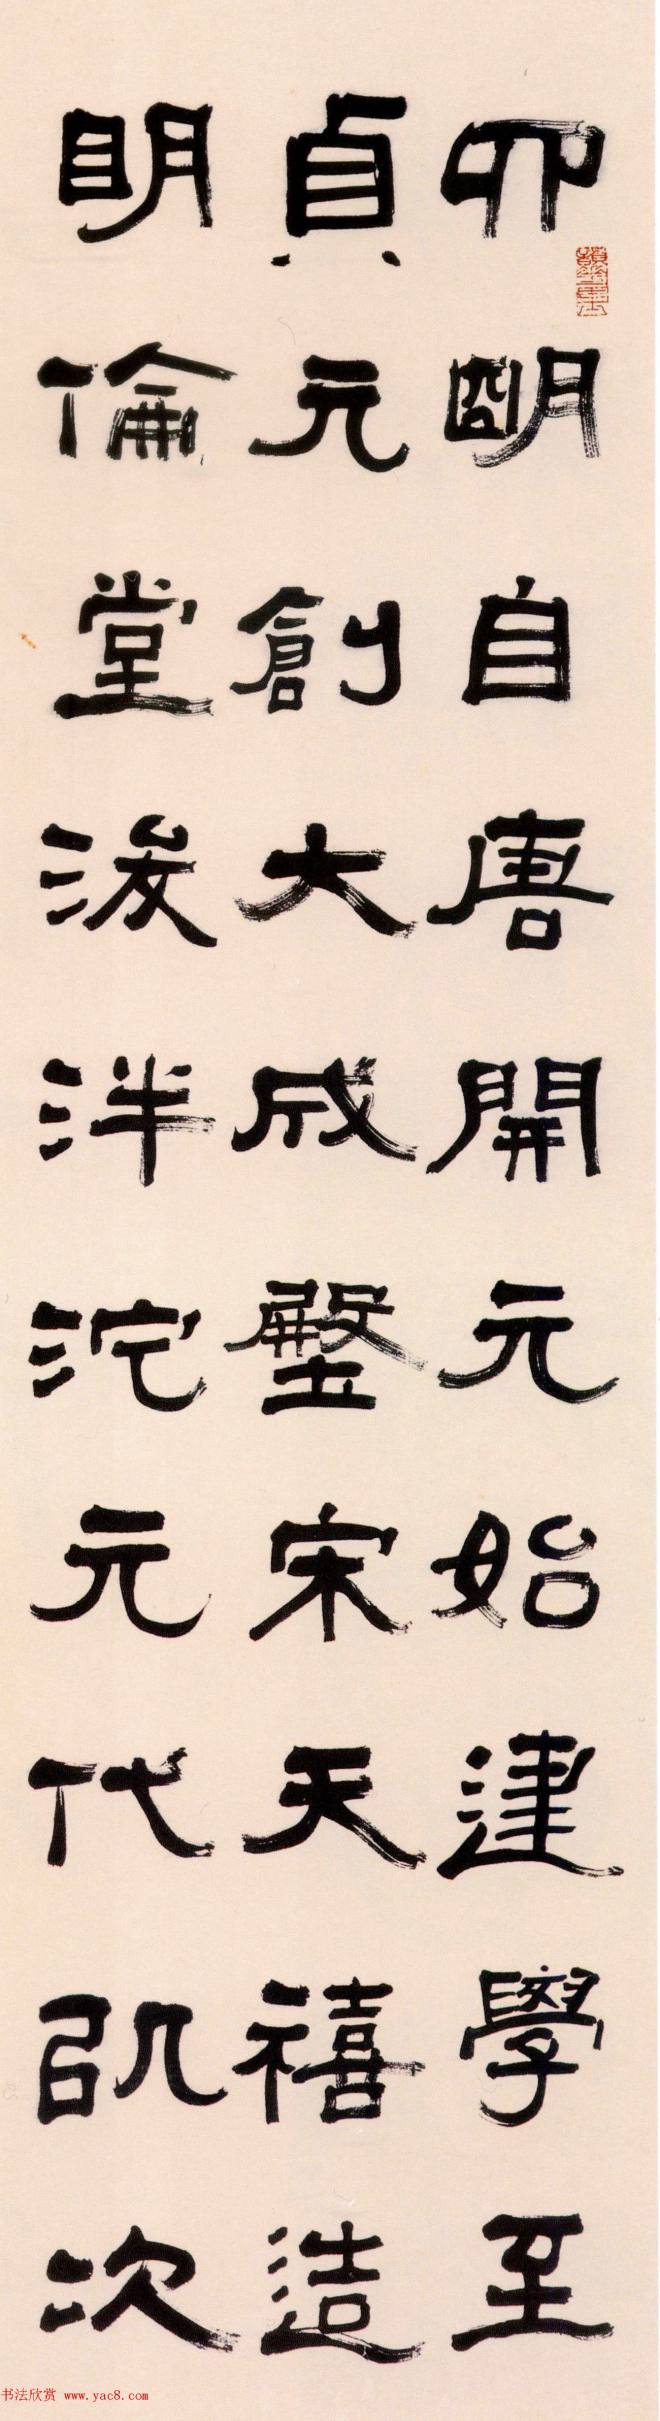 四明自唐開元始建學至
貞元創大成壂宋天禧造
眀倫堂浚泮沱元代以次
书法欣赏 www.yac8.com